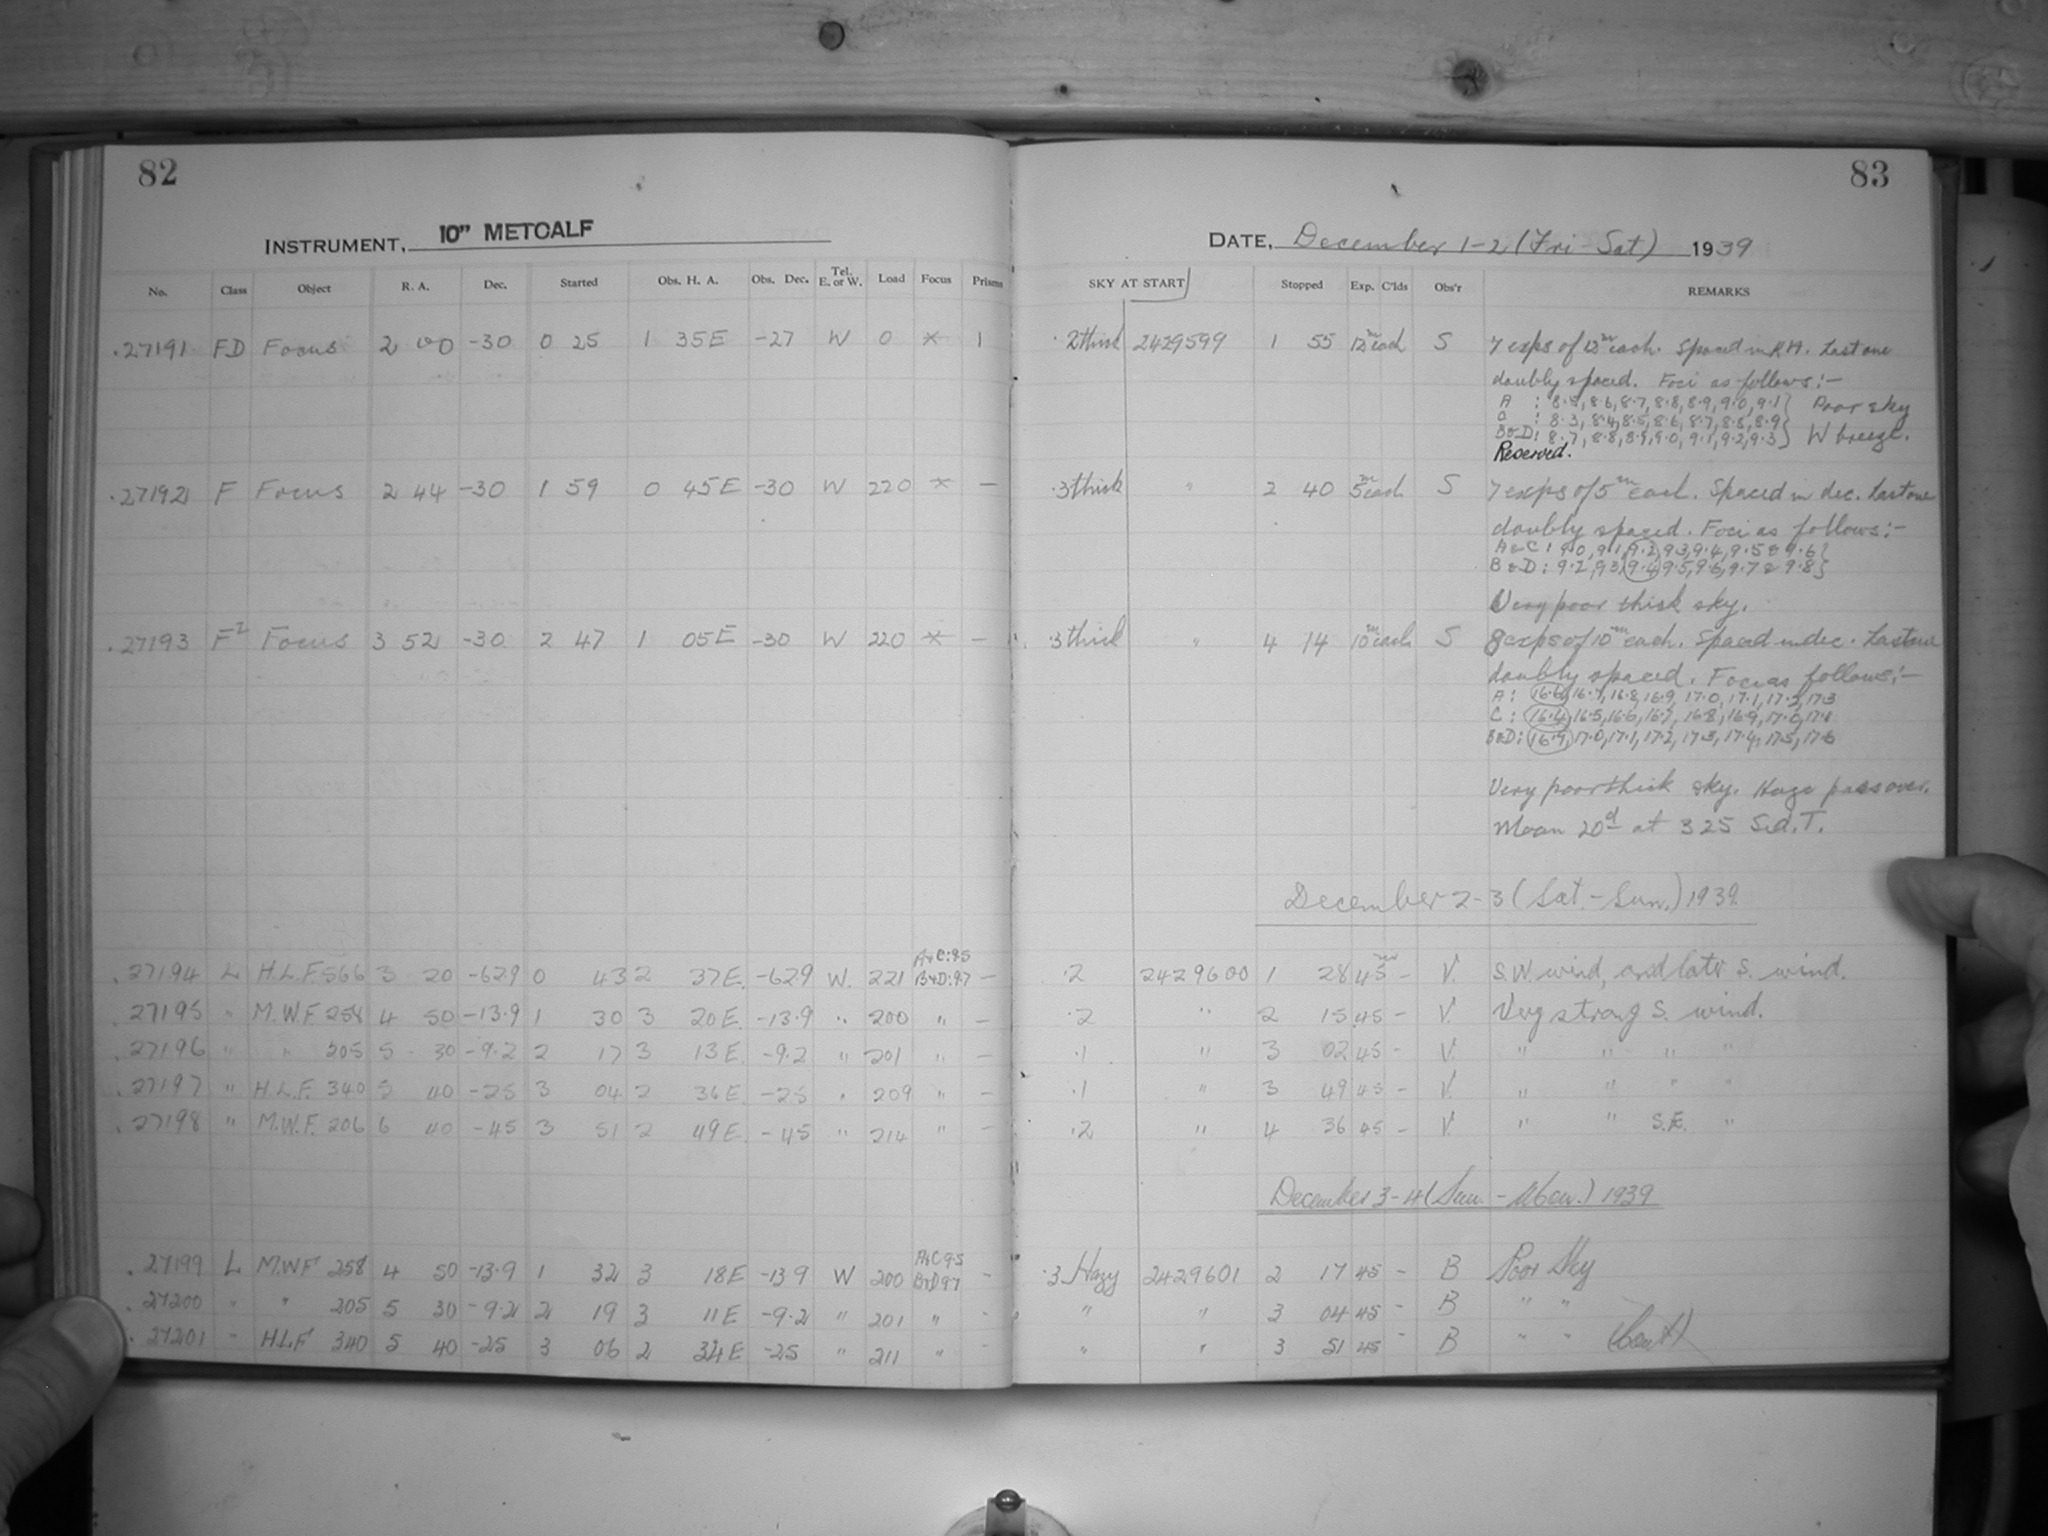 82
INSTRUMENT, 10" METCALF
No. Class Object R. A. Dec. Started Obs. H. A. Obs. Dec. Tel. E. or W. Load Focus Prisms
.27191 FD Focus 2 00 -30 0 25 1 35E -27 W 0 * 1
.27192 F Focus 2 44 -30 1 59 0 45E -30 W 220 * —
.27193 F² Focus 3 52 -30 2 47 1 05E -30 W 220 * —
A&C:95
.27194 L H.L.F. 566 3 20 -62.9 0 43 2 37E. -62.9 W. 221 B&D:97 —
.27195 " M.W.F. 258 4 50 -13.9 1 30 3 20E. -13.9 " 200 " —
.27196 " " 205 5 30 -9.2 2 17 3 13E. -9.2 " 201 " —
.27197 " H.L.F. 340 5 40 -25 3 04 2 36E. -25 " 209 " —
.27198 " M.W.F. 206 6 40 -45 3 51 2 49E. -45 " 214 " —
A&C 95
.27199 L M.W.F 258 4 50 -13.9 1 32 3 18E -13.9 W 200 B&D 97 -
.27200 " " 205 5 30 -9.2 2 19 3 11E -9.2 " 201 " -
.27201 " H.L.F 340 5 40 -25 3 06 2 34E -25 " 211 " -
83
DATE, December 1-2 (Fri-Sat) 1939
SKY AT START Stopped Exp. C'lds Obs'r REMARKS
.2 thick 2429599 1 55 12ᵐ each S 7 exps of 12ᵐ each. Spaced in R.A. Last one
doubly spaced. Foci as follows:-
A : 8.5, 8.6, 8.7, 8.8, 8.9, 9.0, 9.1} Poor sky
C : 8.3, 8.4, 8.5, 8.6, 8.7, 8.8, 8.9}
B&D: 8.7, 8.8, 8.9, 9.0, 9.1, 9.2, 9.3} W breeze.
Reserved.
.3 thick " 2 40 5ᵐ each S 7 exps of 5ᵐ each. Spaced in dec. Last one
doubly spaced. Foci as follows:-
A&C: 9.0, 9.1, 9.2, 9.3, 9.4, 9.5 & 9.6}
B&D: 9.2, 9.3, 9.4, 9.5, 9.6, 9.7 & 9.8}
Very poor thick sky.
.3 thick " 4 14 10ᵐ each S 8 exps of 10ᵐ each. Spaced in dec. Last one
doubly spaced. Foci as follows:-
A: 16.6, 16.7, 16.8, 16.9, 17.0, 17.1, 17.2, 17.3
C: 16.4, 16.5, 16.6, 16.7, 16.8, 16.9, 17.0, 17.1
B&D: 16.9, 17.0, 17.1, 17.2, 17.3, 17.4, 17.5, 17.6
Very poor thick sky. Haze passover.
Moon 20ᵈ at 3 25 Sid. T.
December 2-3 (Sat.-Sun.) 1939
.2 2429600 1 28 45ᵐ - V. S.W. wind, and later S. wind.
.2 " 2 15 45 - V. Very strong S. wind.
.1 " 3 02 45 - V. " " " "
.1 " 3 49 45 - V. " " " "
.2 " 4 36 45 - V. " " S.E. "
December 3-4 (Sun. - Mon.) 1939
.3 Hazy 2429601 2 17 45 - B Poor Sky
" " 3 04 45 - B " "
" " 3 51 45 - B " " (Cont)